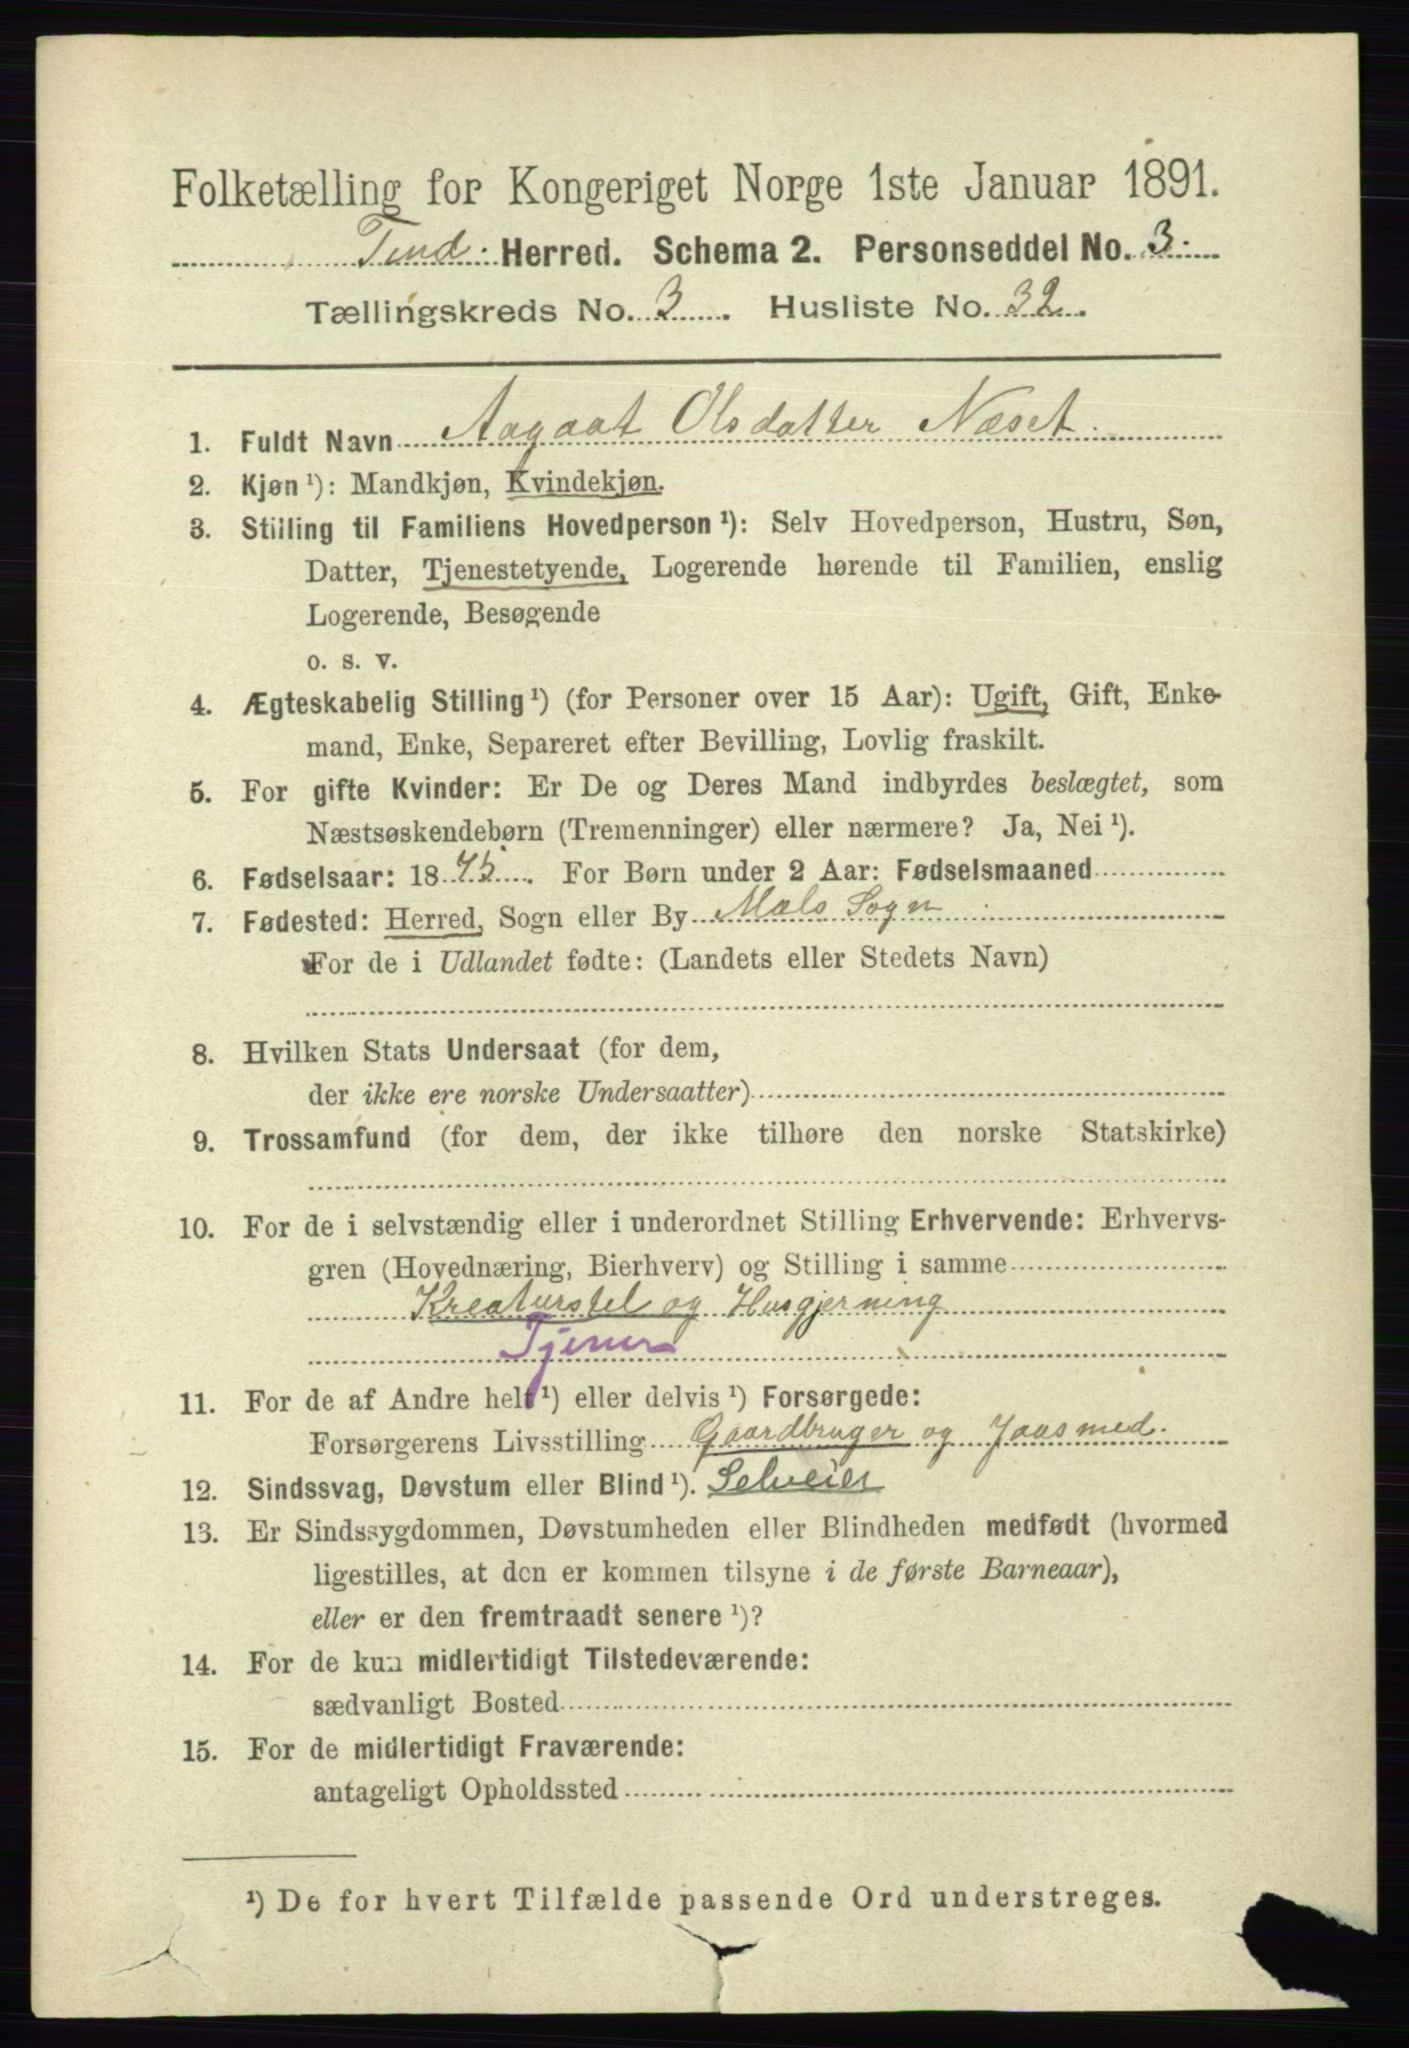 Folketælling for Kongeriget Norge 1ste Januar 1891.
Tind Herred. Schema 2. Personseddel No. 3.
Tællingskreds No. 3. Husliste No. 32.
1. Fuldt Navn Aagaat Olsdatter Næset.
2. Kjøn ¹): Mandkjøn, Kvindekjøn.
3. Stilling til Familiens Hovedperson ¹): Selv Hovedperson, Hustru, Søn,
Datter, Tjenestetyende, Logerende hørende til Familien, enslig
Logerende, Besøgende
o. s. v.
4. Ægteskabelig Stilling ¹) (for Personer over 15 Aar): Ugift, Gift, Enke-
mand, Enke, Separeret efter Bevilling, Lovlig fraskilt.
5. For gifte Kvinder: Er De og Deres Mand indbyrdes beslægtet, som
Næstsøskendebørn (Tremenninger) eller nærmere? Ja, Nei ¹).
6. Fødselsaar: 1875. For Børn under 2 Aar: Fødselsmaaned
7. Fødested: Herred, Sogn eller By Mæls Sogn
For de i Udlandet fødte: (Landets eller Stedets Navn)
8. Hvilken Stats Undersaat (for dem,
der ikke ere norske Undersaatter)
9. Trossamfund (for dem, der ikke tilhøre den norske Statskirke)
10. For de i selvstændig eller i underordnet Stilling Erhvervende: Erhvervs-
gren (Hovednæring, Bierhverv) og Stilling i samme
Kreaturstel og Husgjerning
Tjener
11. For de af Andre helt ¹) eller delvis ¹) Forsørgede:
Forsørgerens Livsstilling Gaardbruger og
12. Sindssvag, Døvstum eller Blind ¹). Selveier
13. Er Sindssygdommen, Døvstumheden eller Blindheden medfødt (hvormed
ligestilles, at den er kommen tilsyne i de første Barneaar),
eller er den fremtraadt senere ¹)?
14. For de kun midlertidigt Tilstedeværende:
sædvanligt Bosted
15. For de midlertidigt Fraværende:
antageligt Opholdssted
¹) De for hvert Tilfælde passende Ord understreges.